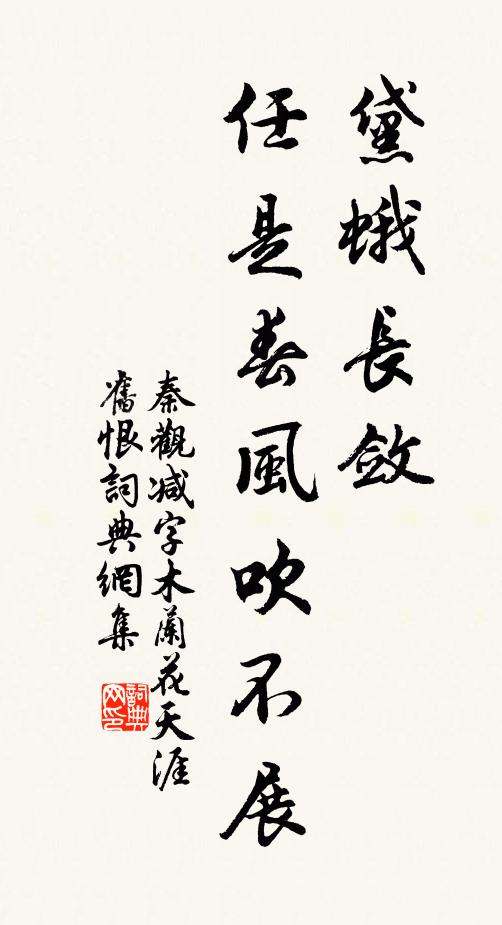 黛蛾長斂
任是春風吹不展
秦觀减字木蘭花天涯
舊恨詞典網集
詞典网印